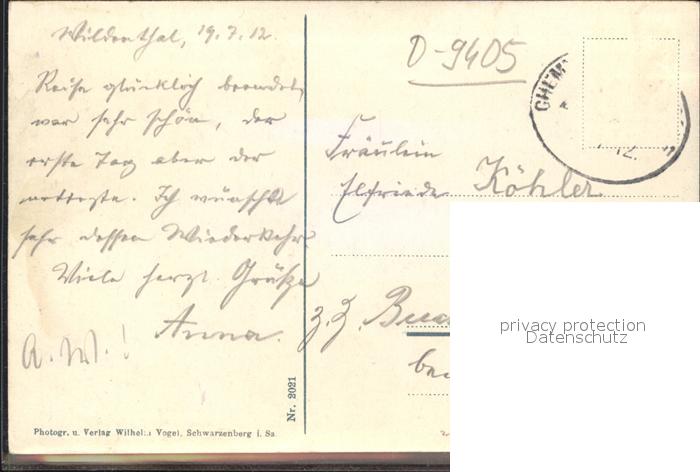 Wildenthal, 19.7.12.
Reise glücklich beendet,
war sehr schön, der
erste Tag aber der
Ich wünschte
sehr dessen Wiederkehr.
Viele herzl. Grüße
Anna.
A. W.!
D-9405
CHEM
12.
Fräulein
Elfriede Köhler
z. Z.
be
privacy protection
Datenschutz
Nr. 2021
Photogr. u. Verlag Wilhelm Vogel, Schwarzenberg i. Sa.